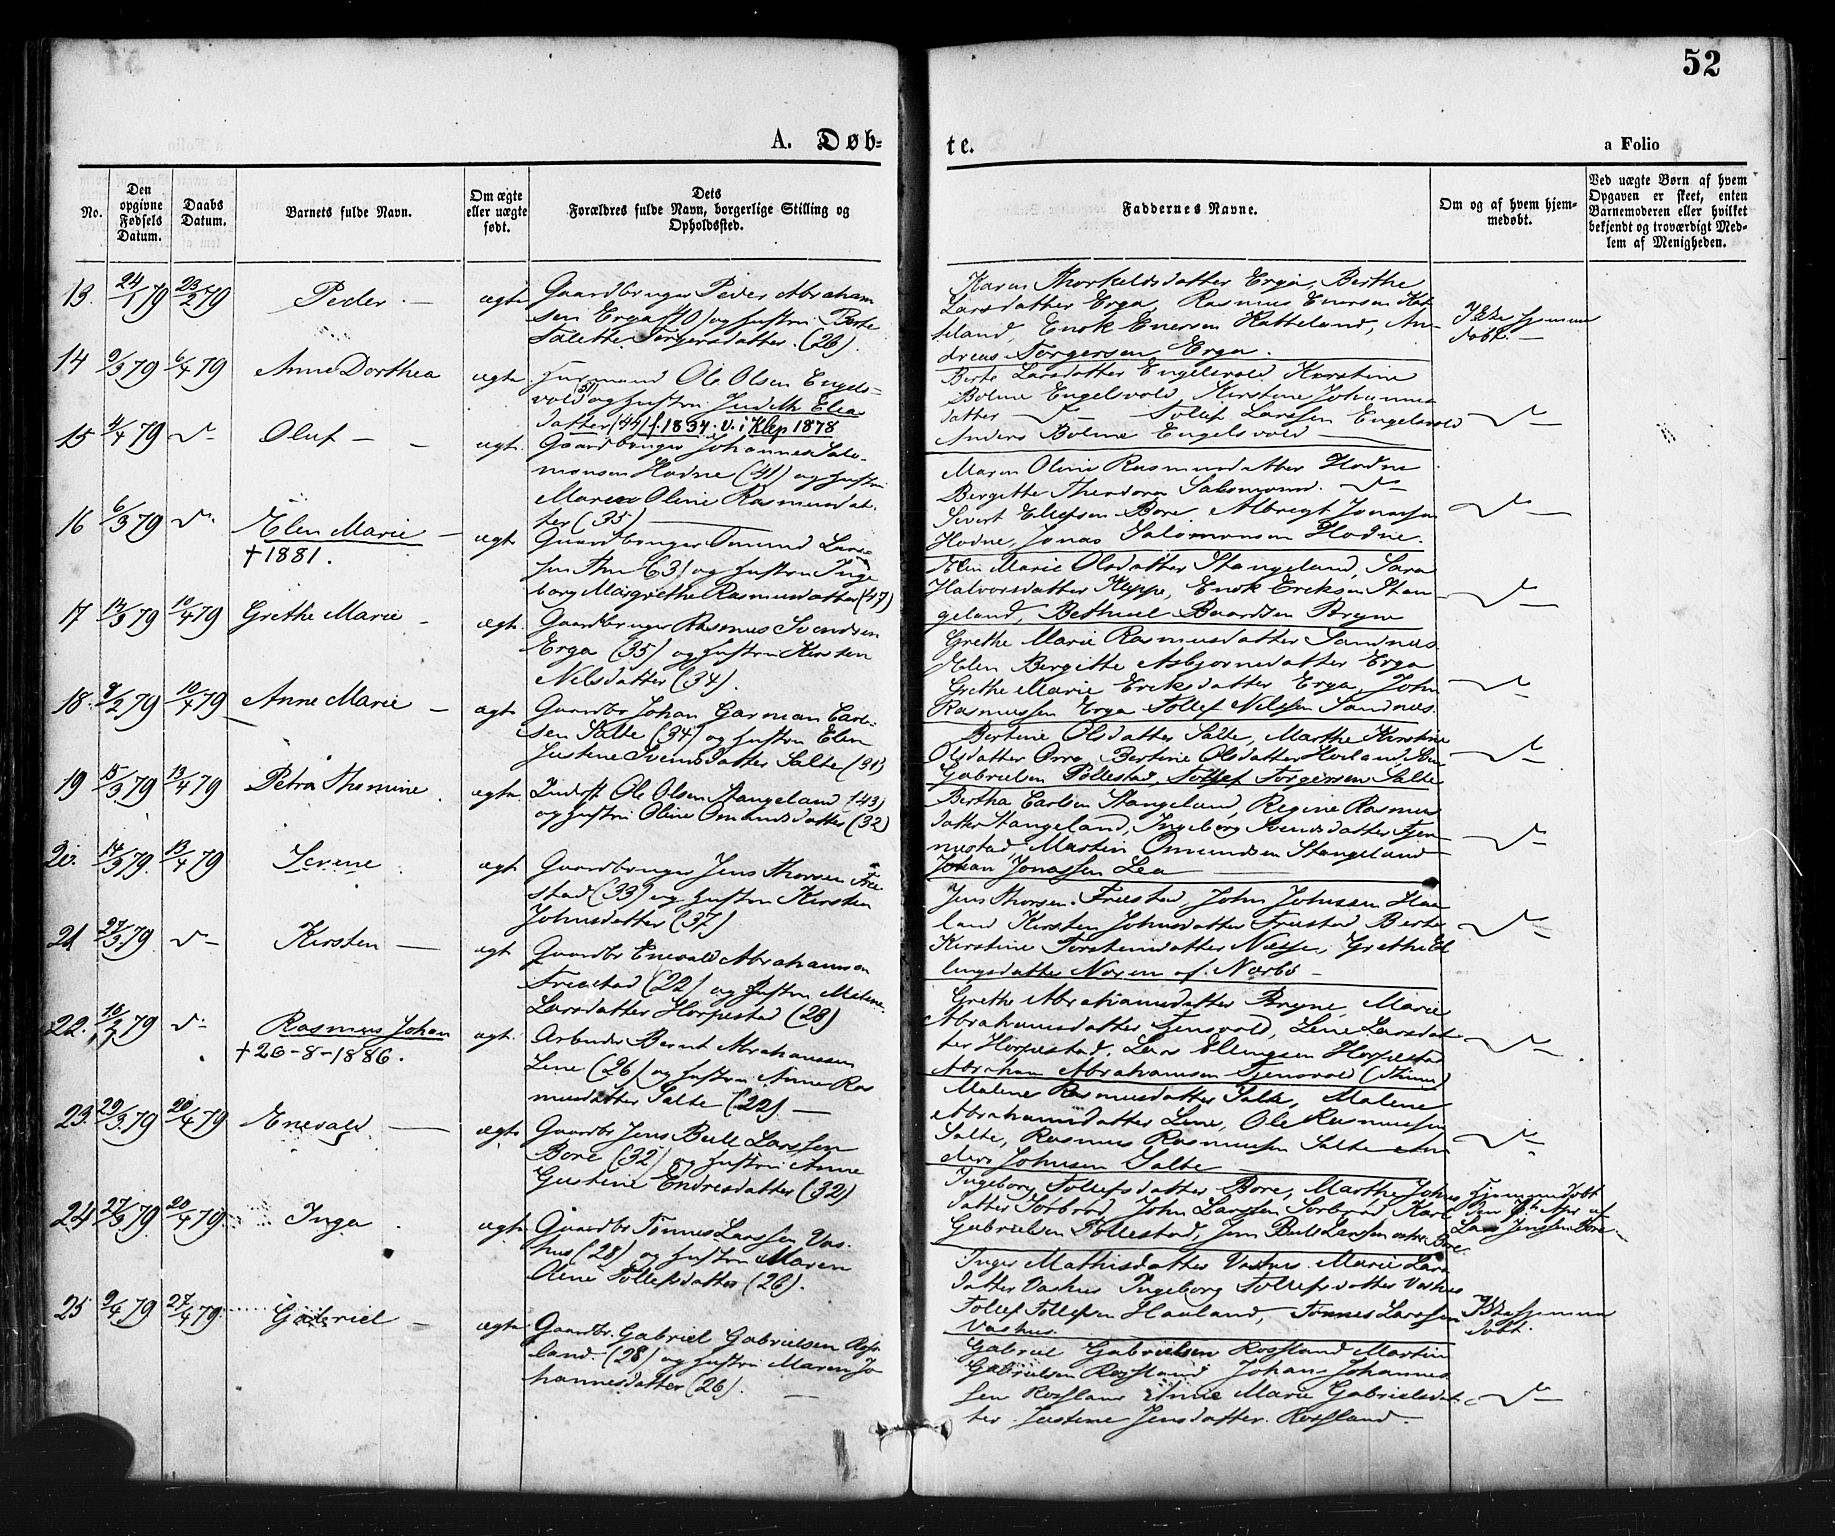 52
A. Døb-
te.
a Folio
No.
Den opgivne Fødsels Datum.
Daabs Datum.
Barnets fulde Navn.
Om ægte eller uægte født.
Dets
Forældres fulde Navn, borgerlige Stilling og
Opholdssted.
Faddernes Navne.
Om og af hvem hjem-
medøbt.
Ved uægte Børn af hvem
Opgaven er skeet, enten
Barnemoderen eller hvilket
bekjendt og troværdigt Med-
lem af Menigheden.
13. 24/1 79 23/2 79 Peder. — ægte
Gaardbruger Peder Abraham
sen Erga (40) og hustru Berte
Talette Torgersdatter. (26).
Karen Thorkeldsdatter Erga, Berthe
Larsdatter Erga, Rasmus Enersen Kat
teland, Enok Enersen Katteland, An-
dreas Torgersen Erga.
Ikke hjemme
døbt. —
14 9/3 79 6/4 79 Anne Dorthea ægte
Ole Olsen Engels-
vold og hustru Judith Elias
datter (44) f. 1834. v. i Klep 1878
Berte Larsdatter Engelsvold Kirstine
Bolme Engelsvold Kirstine Johannes
datter — Tollef Larssen Engelsvold
Anders Bolme Engelsvold
15 4/4 79 Oluf — — ægt.
Gaardbruger Johannes Salo-
monsen Hodne (41) og hustru
Maren Oline Rasmusdat-
ter (35)
Maren Oline Rasmusdatter Hodne
Bergitte Theodora Salomons.
Sivert Ellefsen Bore Albregt Jonassen
Hodne, Jonas Salomonsen Hodne.
16 6/3 79 Elen Marie — ægt.
† 1881.
Gaardbruger Omund Lars
sen (63) og hustru Inge
borg Margrethe Rasmusdatter (47)
Elen Marie Olsdatter Stangeland, Sara
Halvorsdatter Kleppe, Enok Eriksen Stan
geland, Bethuel Baardsen Bryne
17 14/3 79 10/4 79 Grethe Marie — ægt.
Gaardbruger Rasmus Svendsen
Erga (35) og hustru Kirsten
Nilsdatter (34).
Grethe Marie Rasmusdatter Sandnes
Elen Bergitte Asbjørnsdatter Erga
Grethe Marie Eriksdatter Erga, John
Rasmussen Erga Tollef Nilssen Sandnes.
18. 8/2 79 10/4 79 Anne Marie — ægte
Gaardbr Johan Garman Carl-
sen Salte (34) og hustru Elen
Justine Svendsdatter Salte (31)
Bertine Olsdatter Salte, Marthe Kirstine
Olsdatter Orre, Bertine Olsdatter Hovland,
Gabrielsen Pollestad, Tollef Torgersen Salte
19 15/3 79 13/4 79 Petra Thomine. ægte
Inderst Ole Olsen Stangeland (43)
og hustru Oline Omundsdatter (32)
Bertha Carlsen Stangeland, Regine Rasmus
datter Stangeland, Ingeborg Svendsdatter
Martin Omundsen Stangeland
Johan Jonassen Lea
20. 14/3 79. 13/4 79 Serine. ægt.
Gaardbruger Jens Thorsen Frie
stad (33) og hustru Kirsten
Johnsdatter (37)
Jens Thorsen Friestad, John Johnsen Haa
land Kirsten Johnsdatter Friestad Berte
Kirstine Torstensdatter Næsse, Grethe El
lingsdatter af Nærbø —
21. 27/3. 79. Kirsten — ægt
Gaardbr Enevald Abrahamsen
Friestad (22) og hustru Malene
Larsdatter Horpestad (28)
Grethe Abrahamsdatter Bryne, Marie
Abrahamsdatter Lene Larsdat
ter Horpestad, Lars Elingsen Horpestad
Abraham Abrahamsen
22. 10/2 79 Rasmus Johan ægt.
† 26-8-1886.
Arbeider Bernt Abrahamsen
Line (26) og hustru Anne Ras
musdatter Salte (22). —
Malene Rasmusdatter Salte, Malene
Abrahamsdatter Line, Ole Rasmussen
Salte, Rasmus Rasmussen Salte An
ders Johnsen Salte
23. 29/3 79 20/4 79 Enevald — ægte
Gaardbr Jens Bull Larssen
Bore (32) og hustru Anne
Gustine Endresdatter (32)
Ingeborg Tollefsdatter Bore, Marthe Johns
datter Sørbrød John Larssen Sørbrød Karl
Gabrielsen Pollestad, Jens Bull Larssen Bore
Hjemmedøbt
Lars Jenssen Bore.
24 27/3 79. 20/4 79. Inga. ægte
Gaardbr Tønnes Larssen Vas-
hus (28) og hustru Maren
Oline Tollefsdatter (26).
Inger Mathisdatter Vashus. Marie Lars
datter Vashus Ingeborg Tollefsdatter Vashus
Tollef Tollefsen Haaland, Tønnes Larssen
Vashus.
Ikke hjemme
døbt.
25 9/4. 79. 27/4 79. Gabriel — ægte
Gaardbr. Gabriel Gabrielsen Ross
land. (28) og hustru Maren Jo
hannesdatter (26).
Gabriel Gabrielsen Rossland Martin
Gabrielsen Rossland Johan Johannes
sen Rossland Anne Marie Gabrielsdat
ter. Justine Jensdatter. Rossland.